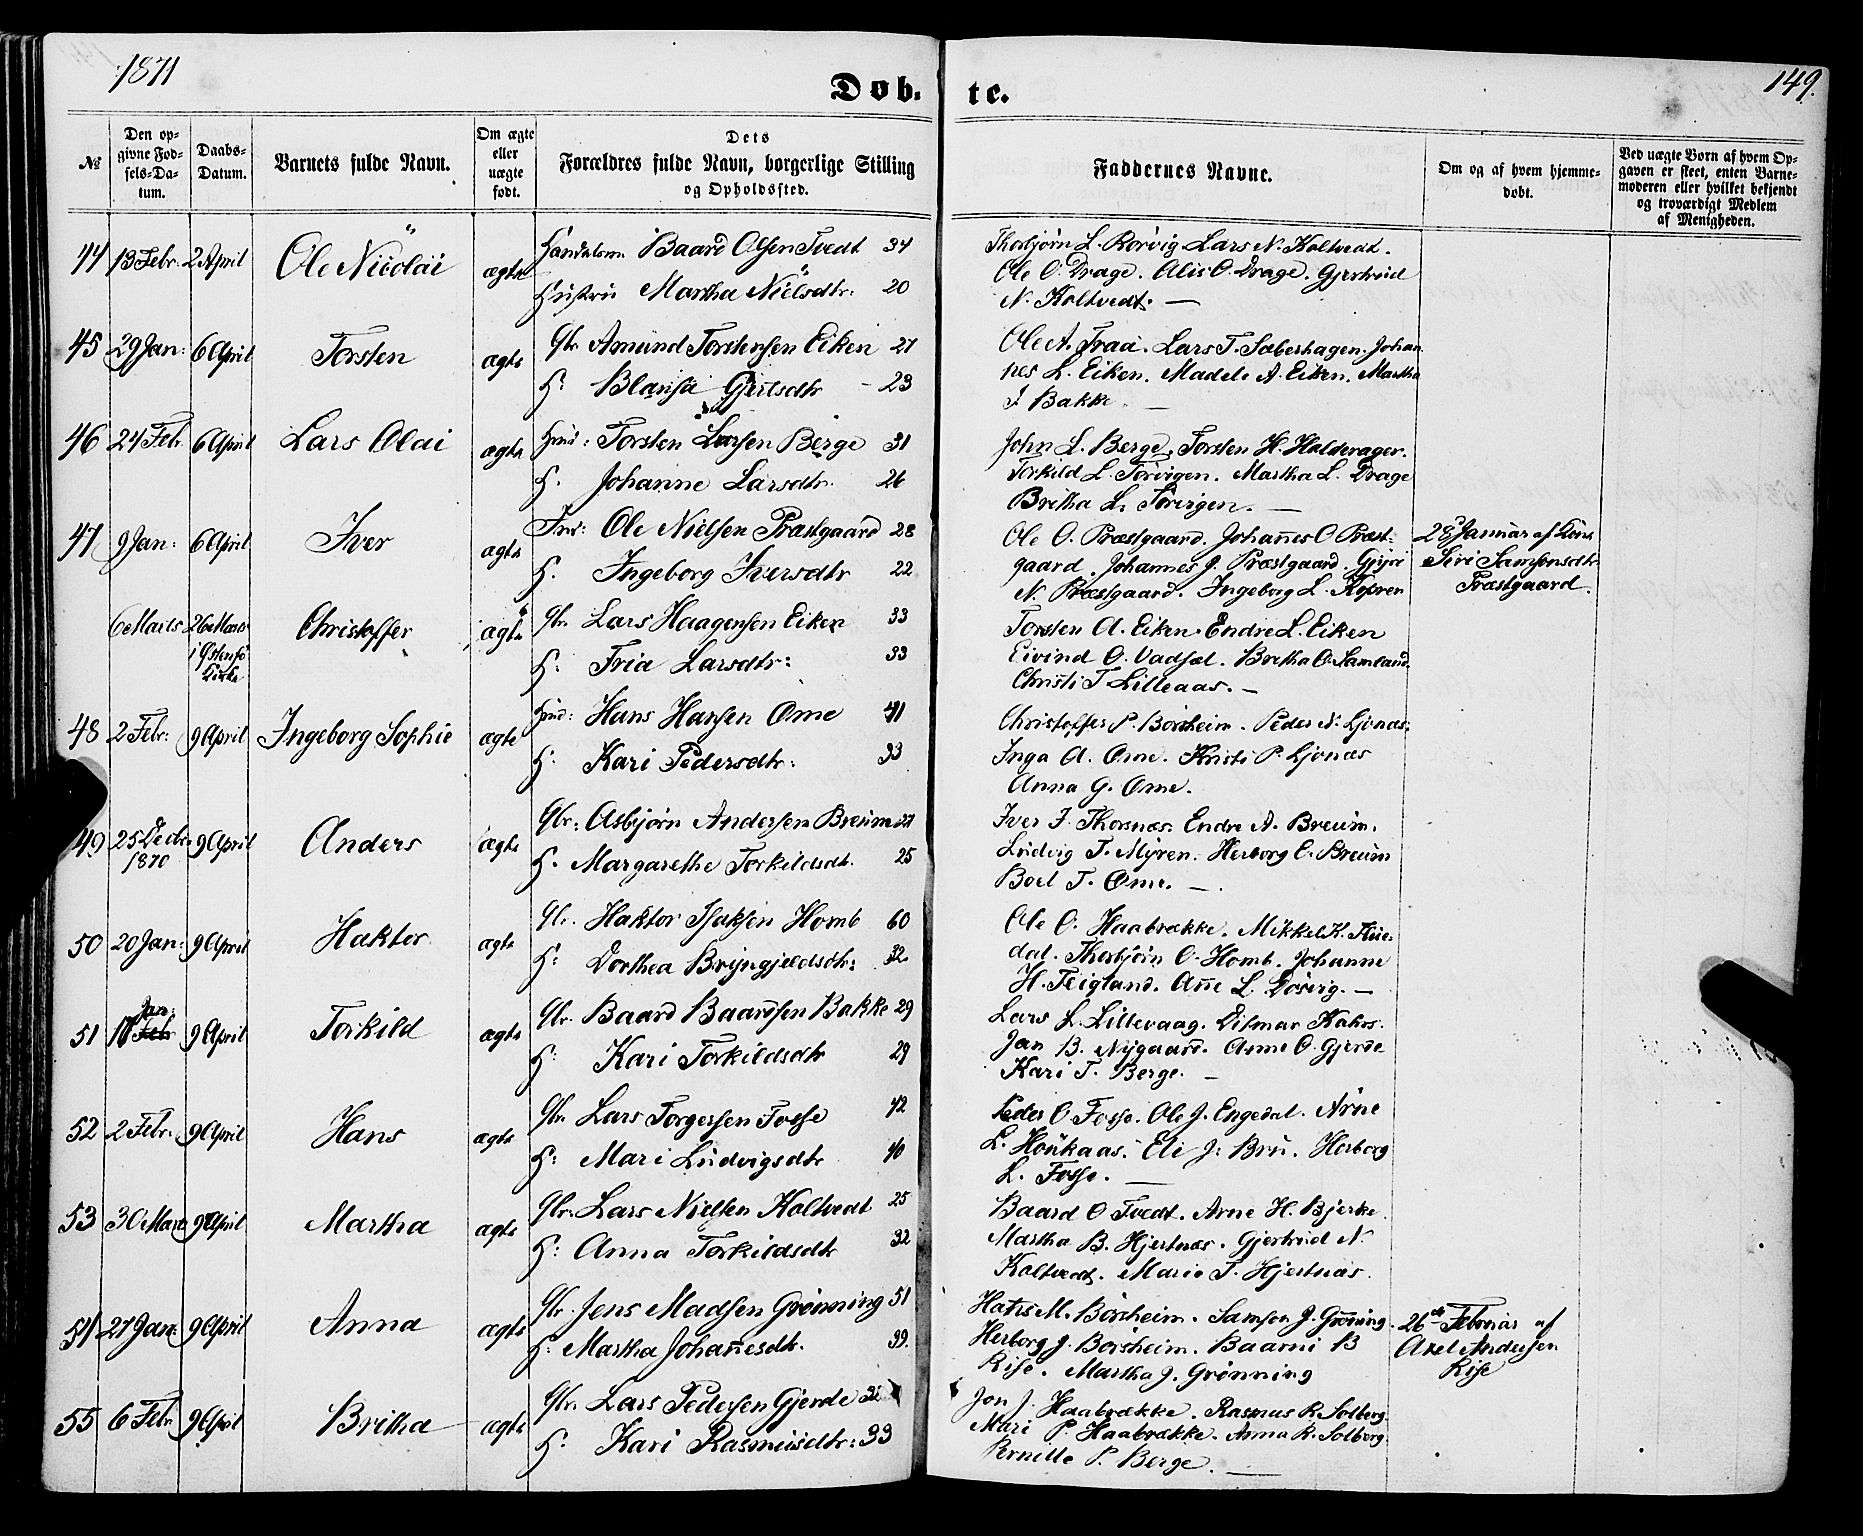 1871
149.
Døb- te.
№
Den op-
givne Fød-
sels-Da-
tum.
Daabs-
Datum.
Barnets fulde Navn.
Om ægte
eller
uægte
født.
Dets
Forældres fulde Navn, borgerlige Stilling
og Opholdssted.
Faddernes Navne.
Om og af hvem hjemme-
døbt.
Ved uægte Børn af hvem Op-
gaven er skeet, enten Barne-
moderen eller hvilket bekjendt
og troværdigt Medlem
af Menigheden.
44 13 Febr. 2 April Ole Nicolai ægte
Baard Olsen Tvedt 34
Hustru Martha Nielsdtr: 20
Thorbjørn L. Rørvig Lars N. Koltvedt.
Ole O. Drage. Alis O. Drage. Gjertrud
N. Koltvedt. —
45 29 Jan: 6 April Torsten ægte
Gbr Amund Torstensen Eiken 27
H: Blansa Gjertsdtr – 23
Ole A. Traa. Lars T. Saberhagen. Johan
nes L. Eiken. Madele A. Eiken. Martha
J. Bakke. —
46 24 Febr 6 April Lars Olai ægte
Hmd: Torsten Larsen Berge 31
H. Johanne Larsdtr. 26
John L. Berge. Torsten H. Halderager.
Torkild L. Tørvigen. Martha L. Drage
Bretha L. Tørvigen. —
47 9 Jan: 6 April Iver ægte
Ole Nielsen Præstgaard 28
H. Ingeborg Iversdtr 22
Ole O. Præstgaard. Johannes O Præst-
gaard. Johannes J. Præstgaard. Gjøri
N. Præstgaard. Ingeborg L. Kopren
28 Januar af
Siri Samsonsdtr
Præstgaard.
6 Marts 26 Marts
i Østensø
Kirke
Christoffer ægte
Gbr. Lars Haagensen Eiken 33
H: Fria Larsdtr: 33
Torsten A. Eiken. Endre L. Eiken
Eivind O. Vadsel. Bretha O. Samland.
Christi T Lilleaas. —
48 2 Febr: 9 April Ingeborg Sophie ægte
Hmd: Hans Hansen Ome 41
H: Kari Pedersdtr: 33
Christoffer P. Børsheim. Peder N. Ljonæs.
Inga A. Ome. Kristi P. Ljonæs
Anna G. Ome.
49 25 Decbr 1870 9 April Anders ægte
Gbr: Asbjørn Andersen Breum 27
H. Margarethe Torkildsdt. 25
Iver I. Thorsnæs. Endre A. Breum.
Ludvig T. Myren. Herborg E. Breum
Boel T. Ome. —
50 20 Jan: 9 April Haktor ægte
Gbr. Haktor Isaksen Homb 60
H: Dorthea Bryngjeldsdtr: 32
Ole O. Haabrække. Mikkel K. Flue-
dal. Thorbjørn O. Homb. Johanne
H. Teigland. Ane L. Døsvig. —
51 17 Jan Febr 9 April Torkild ægte
Gbr. Baard Baardsen Bakke 29
H: Kari Torkildsdtr 29
Lars L. Lillevaag. Ditmar Kahrs.
Jan B. Nygaard. Anne O. Gjerde
Kari T. Berge. —
52 2 Febr. 9 April Hans ægte
Gbr Lars Torgersen Fosse 42
H: Mari Ludvigsdtr 40
Peder O Fosse. Ole J. Engedal. Arne
L. Houkaas. Eli J. Bru. Herborg
L. Fosse. —
53 30 Marts 9 April Martha ægte
Gbr. Lars Nielsen Koltvedt 25
H: Anna Torkildsdtr 32
Baard O Tvedt. Arne H. Bjerke.
Martha B. Hjertnæs. Gjertrud N.
Koltvedt. Marie T. Hjertnæs.
54 27 Jan: 9 April Anna ægte
Gbr. Jens Madsen Grønning 51
H: Martha Johanesdtr. 39.
Hans M. Børsheim. Samson J. Grønning.
Herborg J. Børsheim. Baarni B
Rise. Martha J. Grønning
26de Februar af
Axel Andersen
Rise
55 6 Febr 9 April Britha ægte
Gbr. Lars Pedersen Gjerde 32
H. Kari Rasmusdtr: 33
Jon J. Haabrække. Rasmus R. Solberg.
Mari P. Haabrække. Anna R. Solberg.
Pernille P. Berge. —